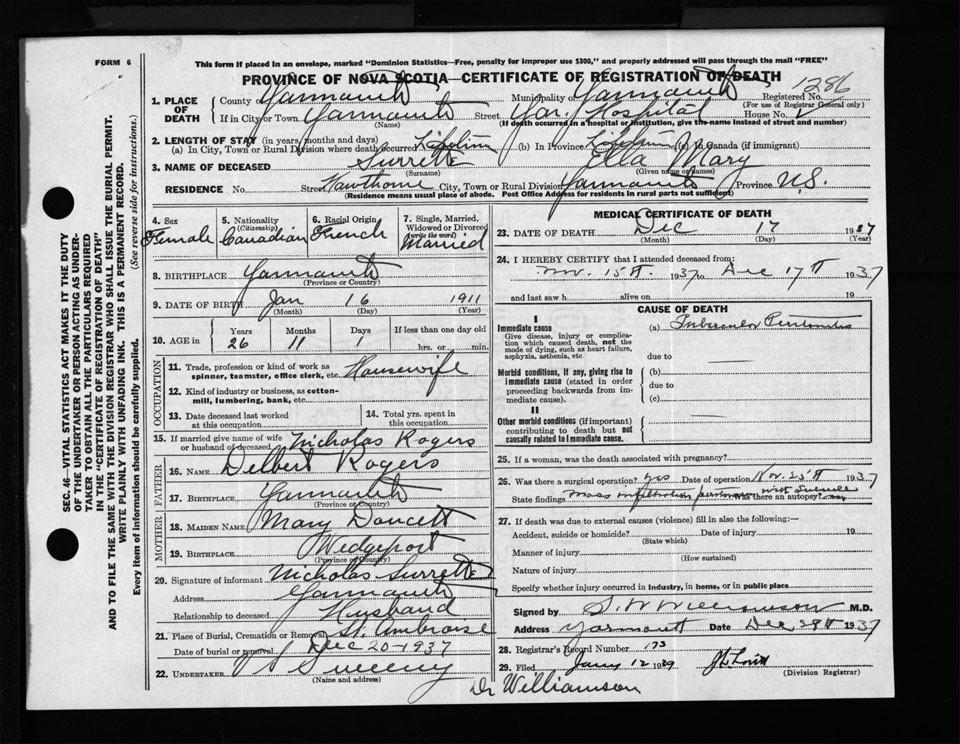 FORM 6
This form if placed in an envelope, marked "Dominion Statistics—Free, penalty for improper use $300," and properly addressed will pass through the mail "FREE"
PROVINCE OF NOVA SCOTIA—CERTIFICATE OF REGISTRATION OF DEATH
1286
1. PLACE OF DEATH County of Yarmouth Municipality of Yarmouth Registered No.
(For use of Registrar General only)
If in City or Town Yarmouth Street Yar. Hospital House No.
(Name) (If death occurred in a hospital or institution, give the name instead of street and number)
2. LENGTH OF STAY (in years, months and days)
(a) In City, Town or Rural Division where death occurred Lifetime (b) In Province Lifetime (c) In Canada (if immigrant)
3. NAME OF DECEASED Surrette Ella Mary
(Surname) (Given name or names)
RESIDENCE No. Street Hawthorne City, Town or Rural Division Yarmouth Province N.S.
(Residence means usual place of abode. Post Office Address for residents in rural parts not sufficient)
SEC. 46—VITAL STATISTICS ACT MAKES IT THE DUTY
OF THE UNDERTAKER OR PERSON ACTING AS UNDER-
TAKER TO OBTAIN ALL THE PARTICULARS REQUIRED
IN THE "CERTIFICATE OF REGISTRATION OF DEATH"
AND TO FILE THE SAME WITH THE DIVISION REGISTRAR WHO SHALL ISSUE THE BURIAL PERMIT.
WRITE PLAINLY WITH UNFADING INK. THIS IS A PERMANENT RECORD.
Every item of information should be carefully supplied. (See reverse side for instructions.)
4. Sex Female
5. Nationality (Citizenship) Canadian
6. Racial Origin French
7. Single, Married, Widowed or Divorced (write the word) Married
8. BIRTHPLACE Yarmouth
(Province or Country)
9. DATE OF BIRTH Jan 16 1911
(Month) (Day) (Year)
10. AGE in Years 26 Months 11 Days 1 If less than one day old hrs. or min.
OCCUPATION
11. Trade, profession or kind of work as spinner, teamster, office clerk, etc. Housewife
12. Kind of industry or business, as cotton-mill, lumbering, bank, etc.
13. Date deceased last worked at this occupation
14. Total yrs. spent in this occupation
15. If married give name of wife or husband of deceased Nicholas Rogers
FATHER
16. NAME Delbert Rogers
17. BIRTHPLACE Yarmouth
(Province or Country)
MOTHER
18. MAIDEN NAME Mary Doucett
19. BIRTHPLACE Wedgeport
(Province or Country)
20. Signature of informant Nicholas Surrette
Address Yarmouth
Relationship to deceased Husband
21. Place of Burial, Cremation or Removal St. Ambroise
Date of burial or removal Dec 20-1937
22. UNDERTAKER V S Sweeny
(Name and address)
MEDICAL CERTIFICATE OF DEATH
23. DATE OF DEATH Dec 17 1937
(Month) (Day) (Year)
24. I HEREBY CERTIFY that I attended deceased from:
Nov. 15th 1937 to Dec 17th 1937
and last saw h alive on 19
CAUSE OF DEATH
I
Immediate cause (a) Tubercular Peritonitis
Give disease, injury or complication which caused death, not the mode of dying, such as heart failure, asphyxia, asthenia, etc.
due to
Morbid conditions, if any, giving rise to immediate cause (stated in order proceeding backwards from immediate cause). (b)
due to
(c)
II
Other morbid conditions (if important) contributing to death but not causally related to immediate cause.
25. If a woman, was the death associated with pregnancy?
26. Was there a surgical operation? yes Date of operation Nov. 25th 1937
State findings Mass infiltration with Was there an autopsy? no
27. If death was due to external causes (violence) fill in also the following:—
Accident, suicide or homicide? Date of injury 19
(State which)
Manner of injury
(How sustained)
Nature of injury
Specify whether injury occurred in industry, in home, or in public place
Signed by S. W Williamson M.D.
Address Yarmouth Date Dec 29th 1937
28. Registrar's Record Number 173
29. Filed Jany 12 1939
(Division Registrar)
Dr Williamson